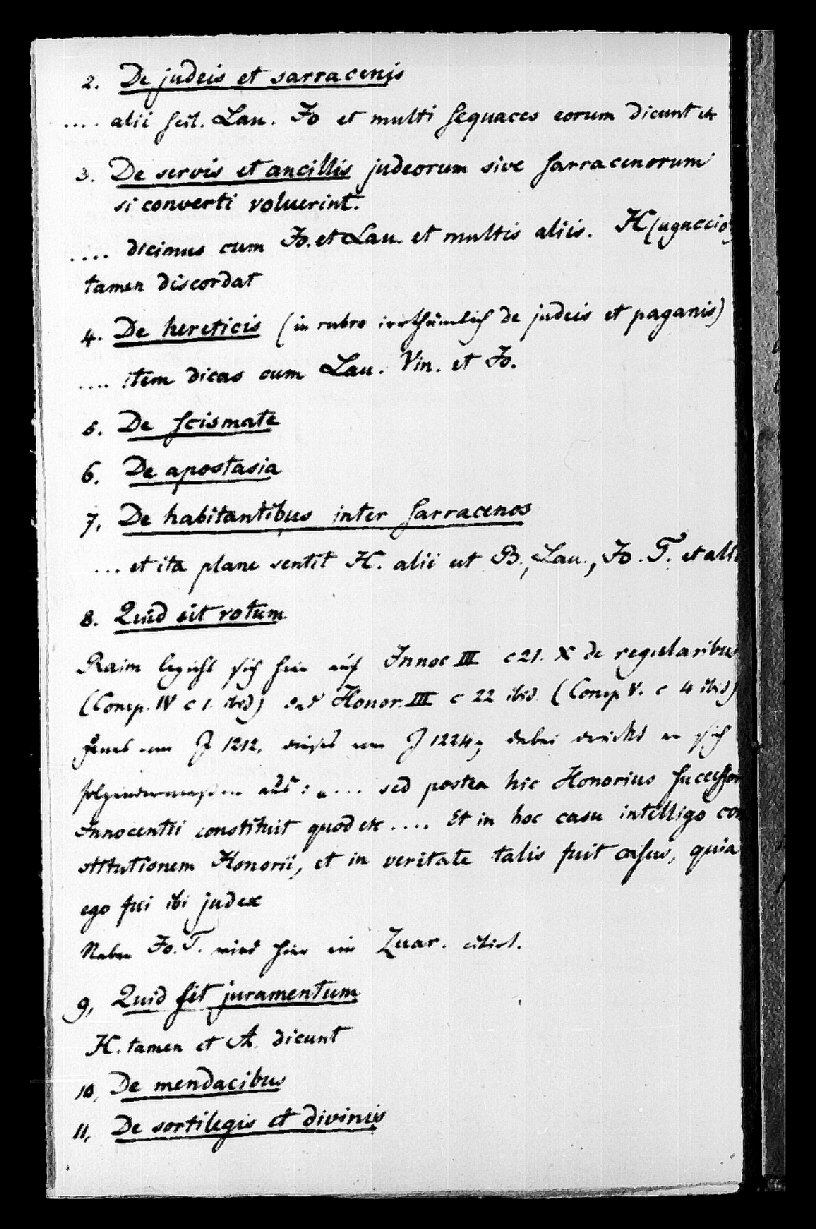 2. De judeis et sarracenis
.... alii scil. Lau. Jo et multi sequaces eorum dicunt etc
3. De servis et ancillis judeorum sive sarracenorum
si converti voluerint.
.... dicimus cum Jo. et Lau. et multis aliis. H(uguccio)
tamen discordat
4. De hereticis (in rubro irrthümlich de judeis et paganis)
.... item dicas cum Lau. Vin. et Jo.
5. De scismate
6. De apostasia
7, De habitantibus inter sarracenos
... et ita plane sentit H. alii ut B., Lau., Jo. T. et alii
8. Quid sit votum
Raim bezieht sich hier auf Innoc III c 21. X de regularibus
(Comp. IV c 1. ibid) und Honor. III c 22 ibid. (Comp V. c 4 ibid)
jenes vom J 1212, dieses vom J 1224; dabei drückt er sich
folgendermassen aus: „.... sed postea hic Honorius successor
Innocentii constituit quod etc .... Et in hoc casu intelligo con
stitutionem Honorii, et in veritate talis fuit casus, quia
ego fui ibi judex
Neben Jo. T. wird hier ein Zuar. citirt.
9, Quid sit juramentum
H. tamen et A. dicunt
10, De mendacibus
11, De sortilegis et divinis